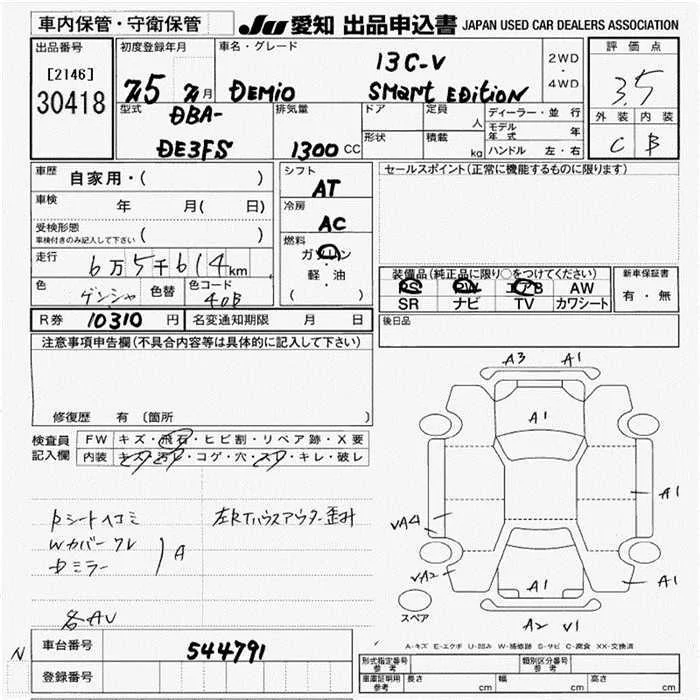 車内保管・守衛保管
JU 愛知 出品申込書 JAPAN USED CAR DEALERS ASSOCIATION
出品番号
[2146]
30418
初度登録年月
月
車名・グレード
DEMIO
13C-V
SMart EDition
2WD
・
4WD
評価点
3.5
外装 内装
C B
型式
DBA-
DE3FS
排気量
1300 CC
ドア
形状
定員
人
積載
kg
ディーラー・並行
モデル年式 年
ハンドル 左・右
車歴 自家用・( )
車検 年 月( 日)
受検形態
車検付きのみ記入して下さい ( )
走行 6万5千614km
色 ゲンシャ 色替 色コード 40B
シフト
AT
冷房
AC
燃料
ガソリン
・
軽油
( )
セールスポイント(正常に機能するものに限ります)
装備品(純正品に限り○をつけてください)
PS PW エアB AW
SR ナビ TV カワシート
新車保証書
有・無
後日品
R券 10310 円 名変通知期限 月 日
注意事項申告欄(不具合内容等は具体的に記入して下さい)
修復歴 有 (箇所 )
検査員
記入欄
FW キズ・飛石・ヒビ割・リペア跡・X要
内装 キズ・汚レ・コゲ・穴・スレ・キレ・破レ
Rシートヘコミ
Wカバークレ
中ミラー
A
左RTハウスアウター歪み
各AV
A3 A1
A1
A1
VA4
VA2
A1
A1
A2 V1
スペア
A-キズ E-エクボ U-凹み W-補修跡 S-サビ C-腐食 XX-交換済
N
車台番号 544791
登録番号
形式指定番号 参考
類別区分番号 参考
車庫証明用 参考 長さ cm 幅 cm 高さ cm